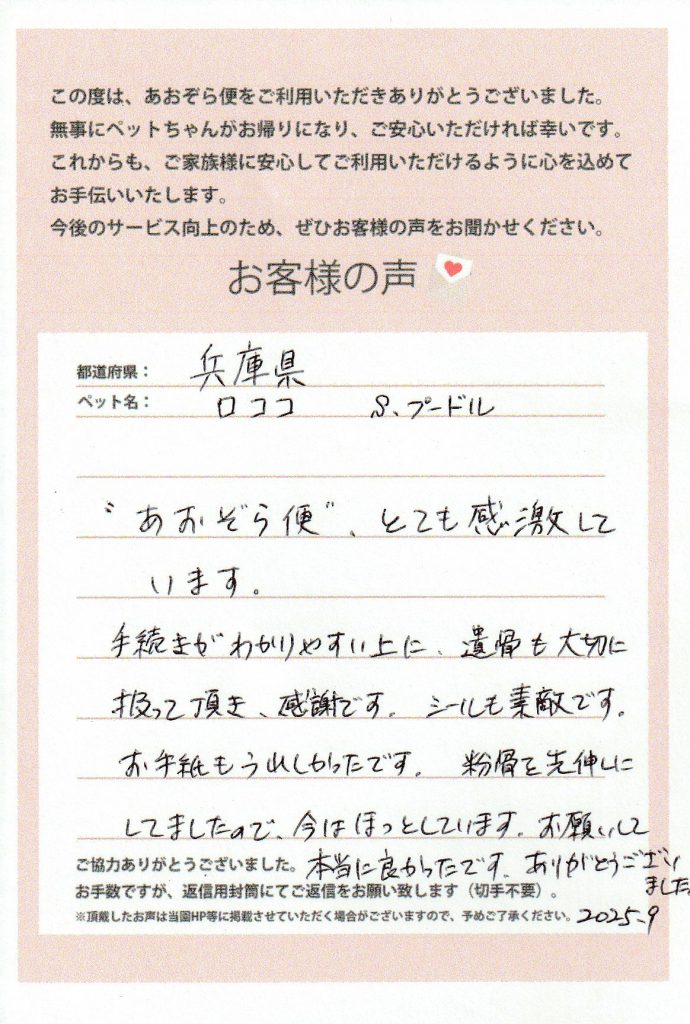 この度は、あおぞら便をご利用いただきありがとうございました。
無事にペットちゃんがお帰りになり、ご安心いただければ幸いです。
これからも、ご家族様に安心してご利用いただけるように心を込めて
お手伝いいたします。
今後のサービス向上のため、ぜひお客様の声をお聞かせください。
お客様の声
都道府県： 兵庫県
ペット名： ロココ S.プードル
"あおぞら便"、とても感激して
います。
手続きがわかりやすい上に、遺骨も大切に
扱って頂き、感謝です。シールも素敵です。
お手紙もうれしかったです。粉骨を先伸しに
してましたので、今はほっとしています。お願いして
ご協力ありがとうございました。 本当に良かったです。ありがとうござい
ました。
お手数ですが、返信用封筒にてご返信をお願い致します（切手不要）。
※頂戴したお声は当園HP等に掲載させていただく場合がございますので、予めご了承ください。 2025.9